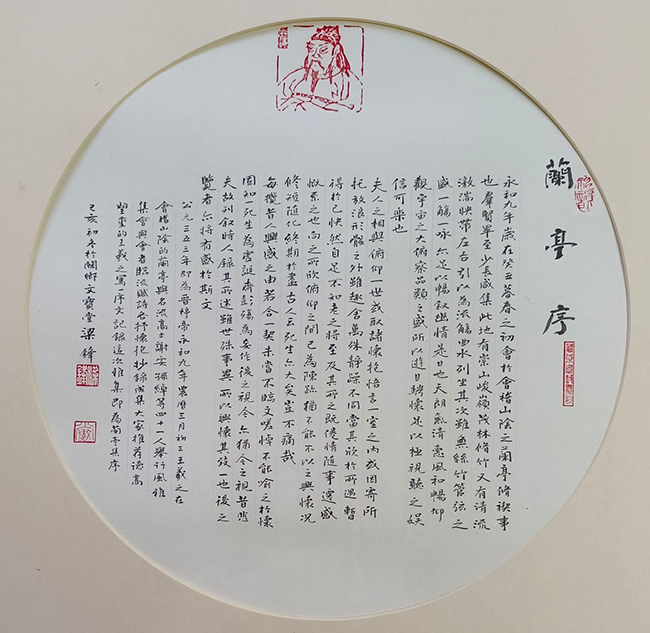 蘭亭序
永和九年歲在癸丑暮春之初會於會稽山陰之蘭亭脩禊事
也羣賢畢至少長咸集此地有崇山峻嶺茂林脩竹又有清流
激湍映帶左右引以為流觴曲水列坐其次雖無絲竹管弦之
盛一觴一咏亦足以暢叙幽情是日也天朗氣清惠風和暢仰
觀宇宙之大俯察品類之盛所以遊目騁懷足以極視聽之娛
信可樂也
夫人之相與俯仰一世或取諸懷抱悟言一室之內或因寄所
托放浪形骸之外雖趣舍萬殊静躁不同當其欣於所遇暫
得於己快然自足不知老之將至及其所之既倦情隨事遷感
慨系之也向之所欣俯仰之間已為陳跡猶不能不以之興懷况
修短隨化終期於盡古人云死生亦大矣豈不痛哉
每攬昔人興感之由若合一契未嘗不臨文嗟悼不能喻之於懷
固知一死生為虛誕齊彭殤為妄作後之視今亦猶今之視昔悲
夫故列叙時人録其所述雖世殊事異所以興懷其致一也後之
覽者亦將有感於斯文
公元三五三年即為晉穆帝永和九年農曆三月初三王羲之在
會稽山陰的蘭亭與名流高士謝安孫綽等四十一人舉行風雅
集會與會者臨流賦詩各抒懷抱抄録成集大家推荐德高
望重的王羲之寫一序文記録這次雅集即為蘭亭集序
己亥初冬於關鄉文寶堂梁鋒